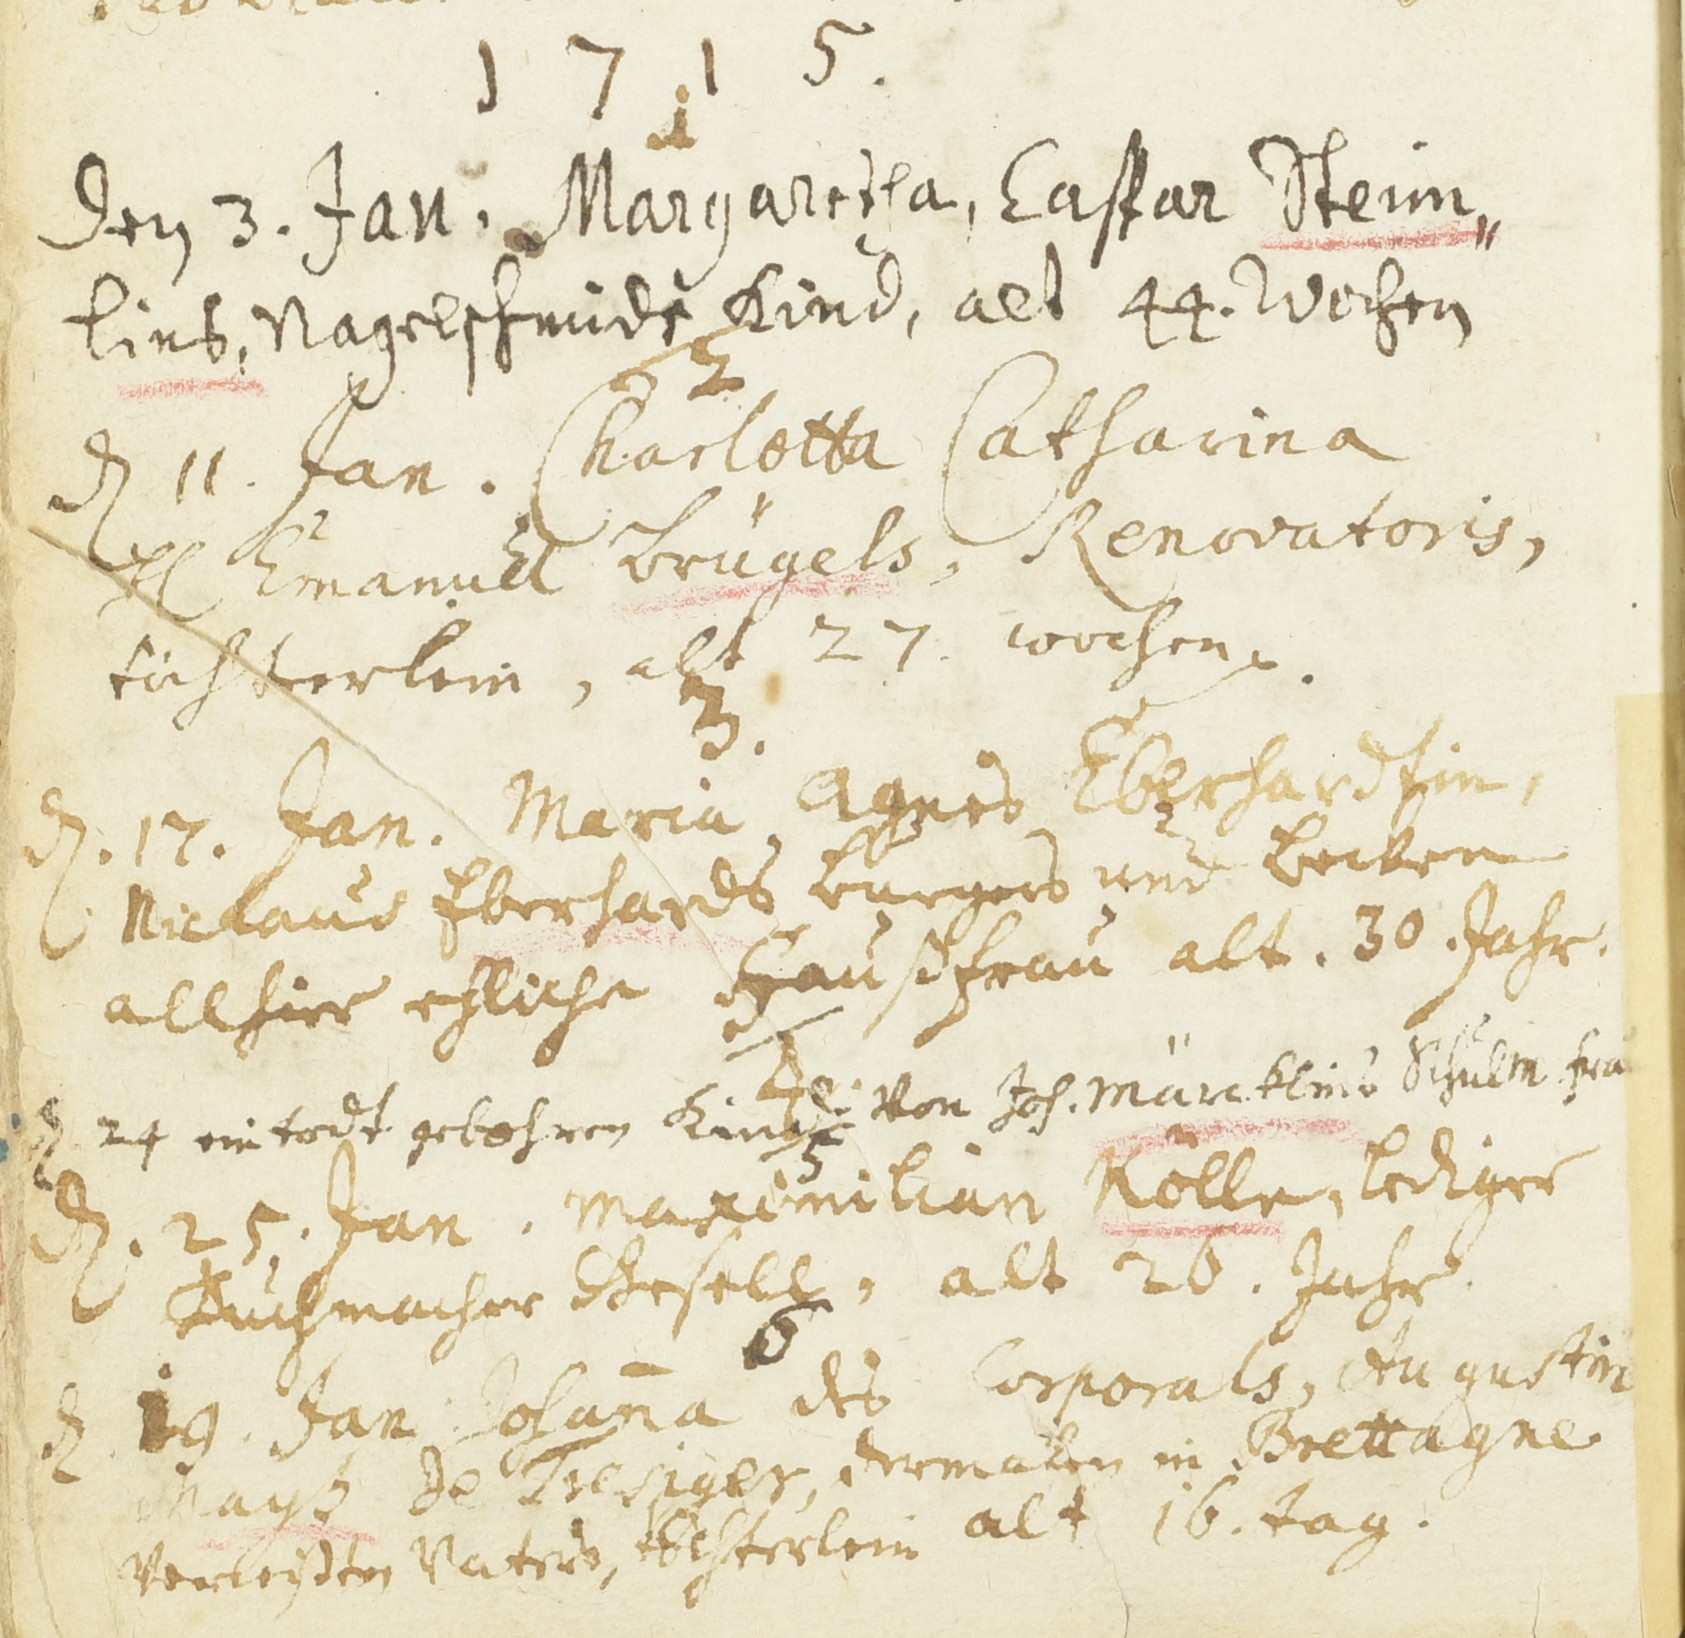 1 7 1 5.
1
Den 3. Jan. Margaretha, Caspar Steim„
lins, Nagelschmids Kind, alt 44. Wochen
2
d 11. Jan. Charlotta Catharina
H Emanuel Brügels, Renovatoris,
töchterlein, alt 27. wochen.
3.
d. 17. Jan. Maria Agnes Eberhardtin,
Niclaus Eberhards burgers und becken
allhier ehliche Haußfrau alt. 30. Jahr.
4.
d 24 ein todt gebohren Kind von Joh. Märcklins Schulm. frau
5
d. 25. Jan. Maximilian Kölle, lediger
Tuchmacher Gesell, alt 26. Jahr.
6
d. 29. Jan Johanna des Corporals, Augustin
Mayß de dermalen in Brettagne
verreißten Vaters, töchterlein alt 16. tag.